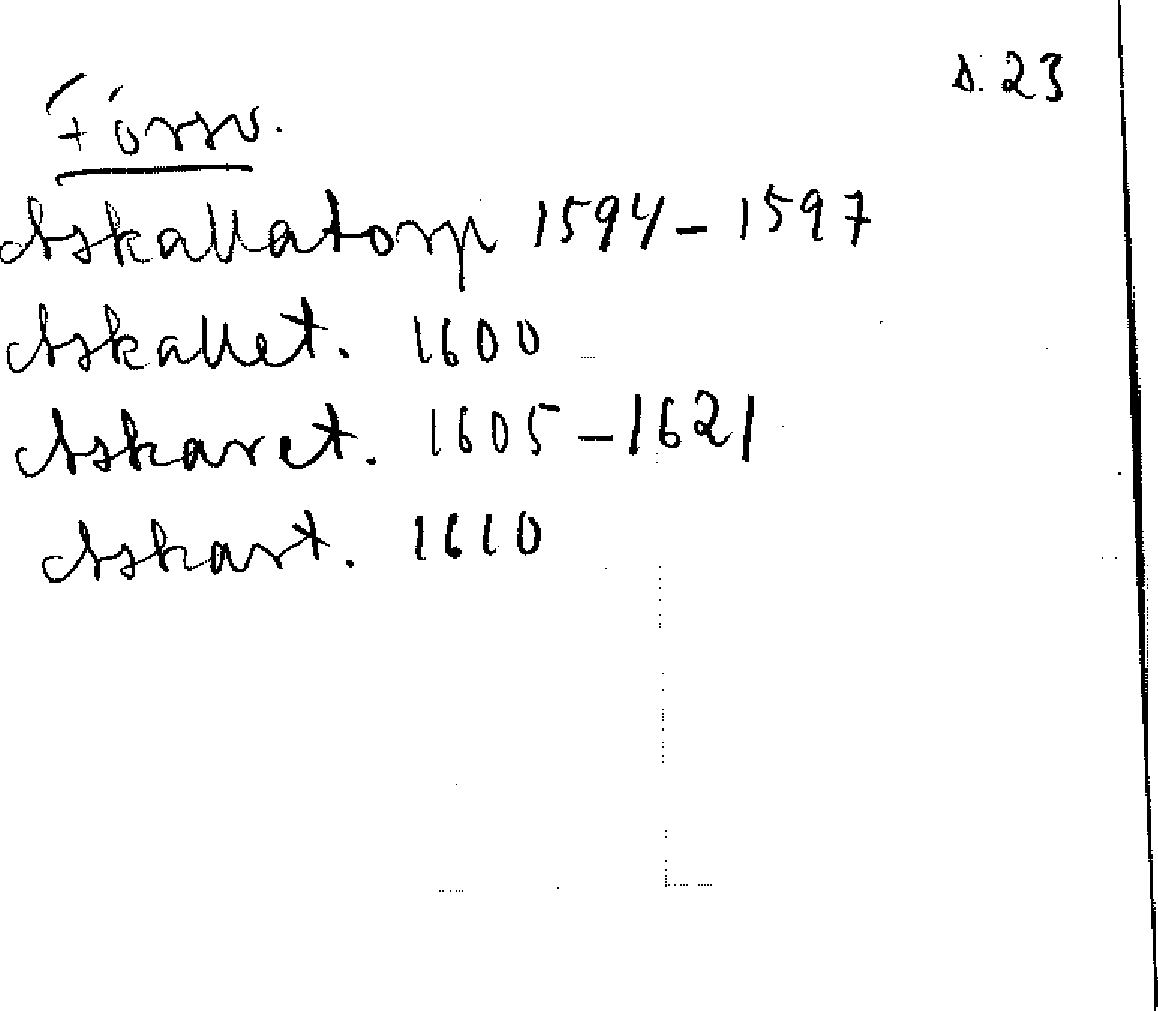 s. 23
Försv.
Askallatorp 1594-1597
Askallet. 1600
Askaret. 1605-1621
Askart. 1610